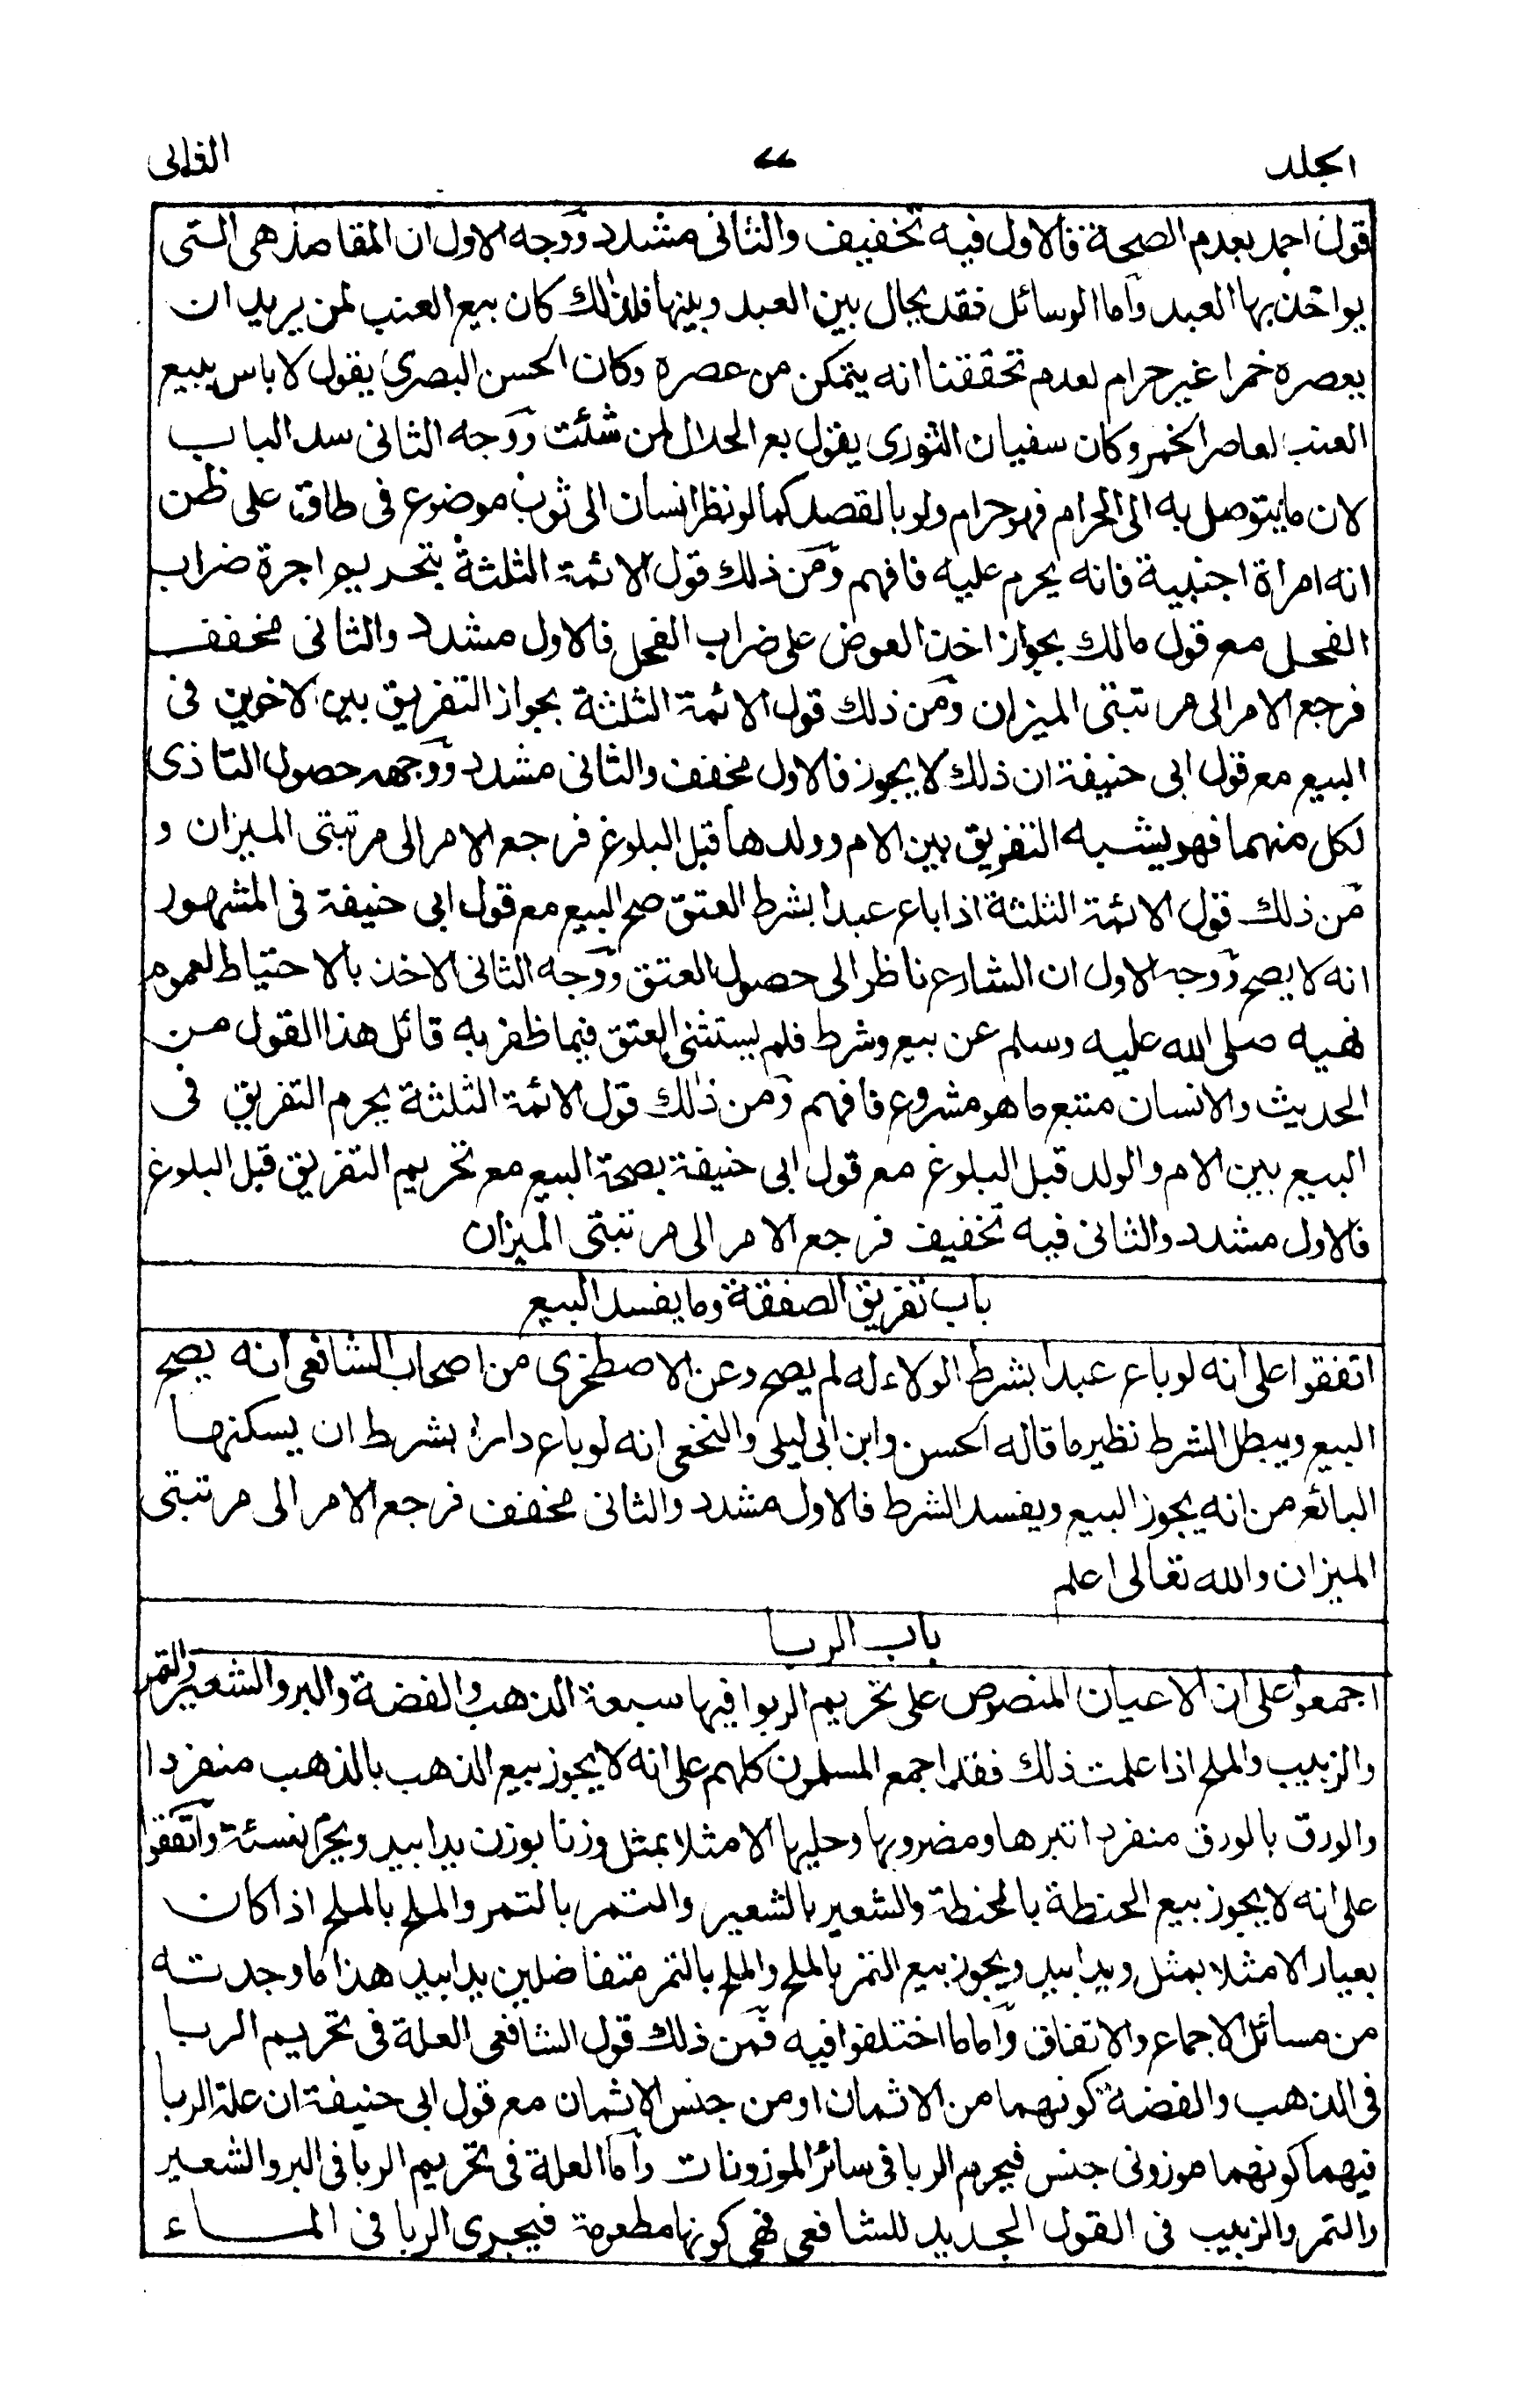 المجلد ٧٧ الثانى
قول احمد بعدم الصحة فالاول فيه تخفيف والثانى مشدد ووجه الاول ان المقاصد هى التى
يواخذ بها العبد واما الوسائل فقد يحال بين العبد وبينها فلذلك كان بيع العنب لمن يريد ان
يعصره خمرا غير حرام لعدم تحققنا انه يتمكن من عصره وكان الحسن البصرى يقول لا باس ببيع
العنب لعاصر الخمر وكان سفيان الثورى يقول بع الحلال لمن شئت ووجه الثانى سد الباب
لان ما يتوصل به الى الحرام فهو حرام ولو بالقصد كما لو نظر انسان الى ثوب موضوع فى طاق على ظن
انه امراة اجنبية فانه يحرم عليه فافهم ومن ذلك قول الائمة الثلثة بتحريم اجرة ضراب
الفحل مع قول مالك بجواز اخذ العوض على ضراب الفحل فالاول مشدد والثانى مخفف
فرجع الامر الى مرتبتى الميزان ومن ذلك قول الائمة الثلثة بجواز التفريق بين الاخوين فى
البيع مع قول ابى حنيفة ان ذلك لا يجوز فالاول مخفف والثانى مشدد ووجهه حصول التاذى
لكل منهما فهو يشبه التفريق بين الام وولدها قبل البلوغ فرجع الامر الى مرتبتى الميزان و
من ذلك قول الائمة الثلثة اذا باع عبدا بشرط العتق صح البيع مع قول ابى حنيفة فى المشهور
انه لا يصح ووجه الاول ان الشارع ناظر الى حصول العتق ووجه الثانى الاخذ بالاحتياط لعموم
نهيه صلى الله عليه وسلم عن بيع وشرط فلم يستثنى العتق فيما ظفر به قائل هذا القول من
الحديث والانسان متبع ما هو مشروع فافهم ومن ذلك قول الائمة الثلثة يحرم التفريق فى
البيع بين الام والولد قبل البلوغ مع قول ابى حنيفة بصحة البيع مع تحريم التفريق قبل البلوغ
فالاول مشدد والثانى فيه تخفيف فرجع الامر الى مرتبتى الميزان
باب تفريق الصفقة وما يفسد البيع
اتفقوا على انه لو باع عبدا بشرط الولاء له لم يصح وعن الاصطخرى من اصحاب الشافعى انه يصح
البيع ويبطل الشرط نظير ما قاله الحسن وابن ابى ليلى والنخعى انه لو باع دارا بشرط ان يسكنها
البائع من انه يجوز البيع ويفسد الشرط فالاول مشدد والثانى مخفف فرجع الامر الى مرتبتى
الميزان والله تعالى اعلم
باب الربا
اجمعوا على ان الاعيان المنصوص على تحريم الربوا فيها سبعة الذهب والفضة والبر والشعير والتمر
والزبيب والملح اذا علمت ذلك فقد اجمع المسلمون كلهم على انه لا يجوز بيع الذهب بالذهب منفردا
والورق بالورق منفردا تبرها ومضروبها وحليها الا مثلا بمثل وزنا بوزن يدا بيد ويحرم نسئة واتفقوا
على انه لا يجوز بيع الحنطة بالحنطة والشعير بالشعير والتمر بالتمر والملح بالملح اذا كان
بعيار الا مثلا بمثل ويدا بيد ويجوز بيع التمر بالملح والملح بالتمر متفاضلين يدا بيد هذا ما وجدته
من مسائل الاجماع والاتفاق واما ما اختلفوا فيه فمن ذلك قول الشافعى العلة فى تحريم الربا
فى الذهب والفضة كونهما من الاثمان او من جنس الاثمان مع قول ابى حنيفة ان علة الربا
فيهما كونهما موزونى جنس فيحرم الربا فى سائر الموزونات واما العلة فى تحريم الربا فى البر والشعير
والتمر والزبيب فى القول الجديد للشافعى فهى كونها مطعومة فيجرى الربا فى الماء